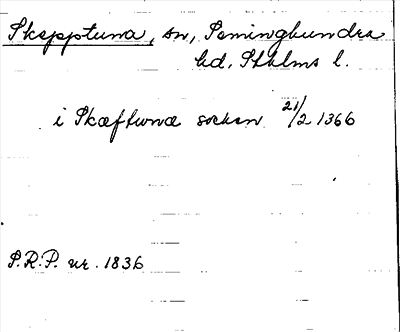 Skepptuna, sn, Seminghundra
hd, Sthlms l.
i Skæftuna sokn 21/2 1366
S.R.P. nr. 1836